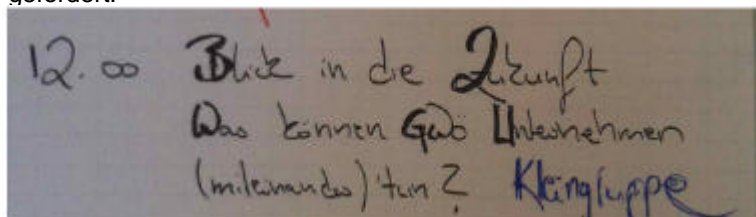 gefördert.
12.00 Blick in die Zukunft
Was können GWÖ Unternehmen
(miteinander) tun? Kleingruppe